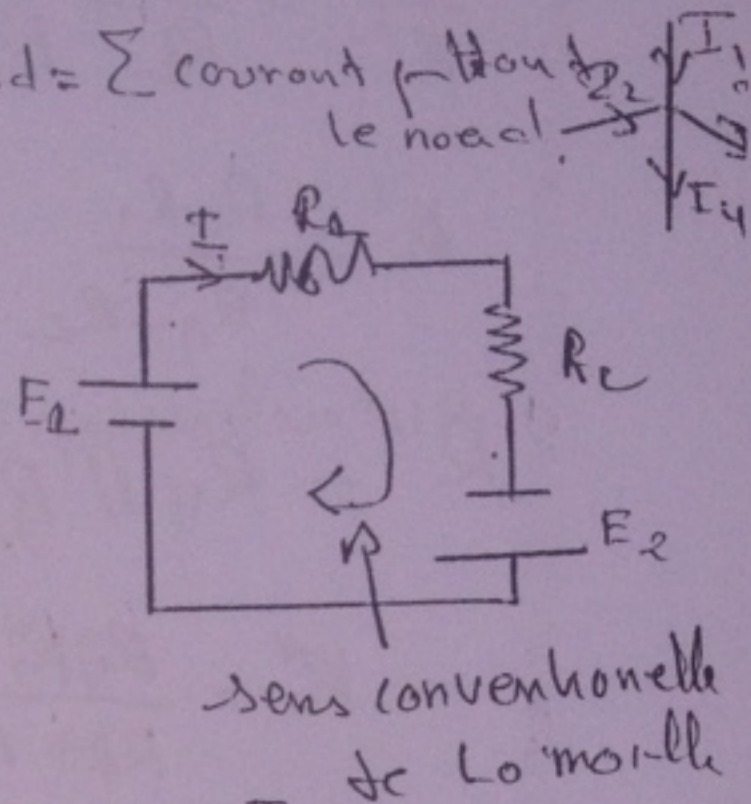 d = Σ courant
le noeud.
I₄
I
R₁
R₂
E₁
E₂
sens conventionelle
de La maille